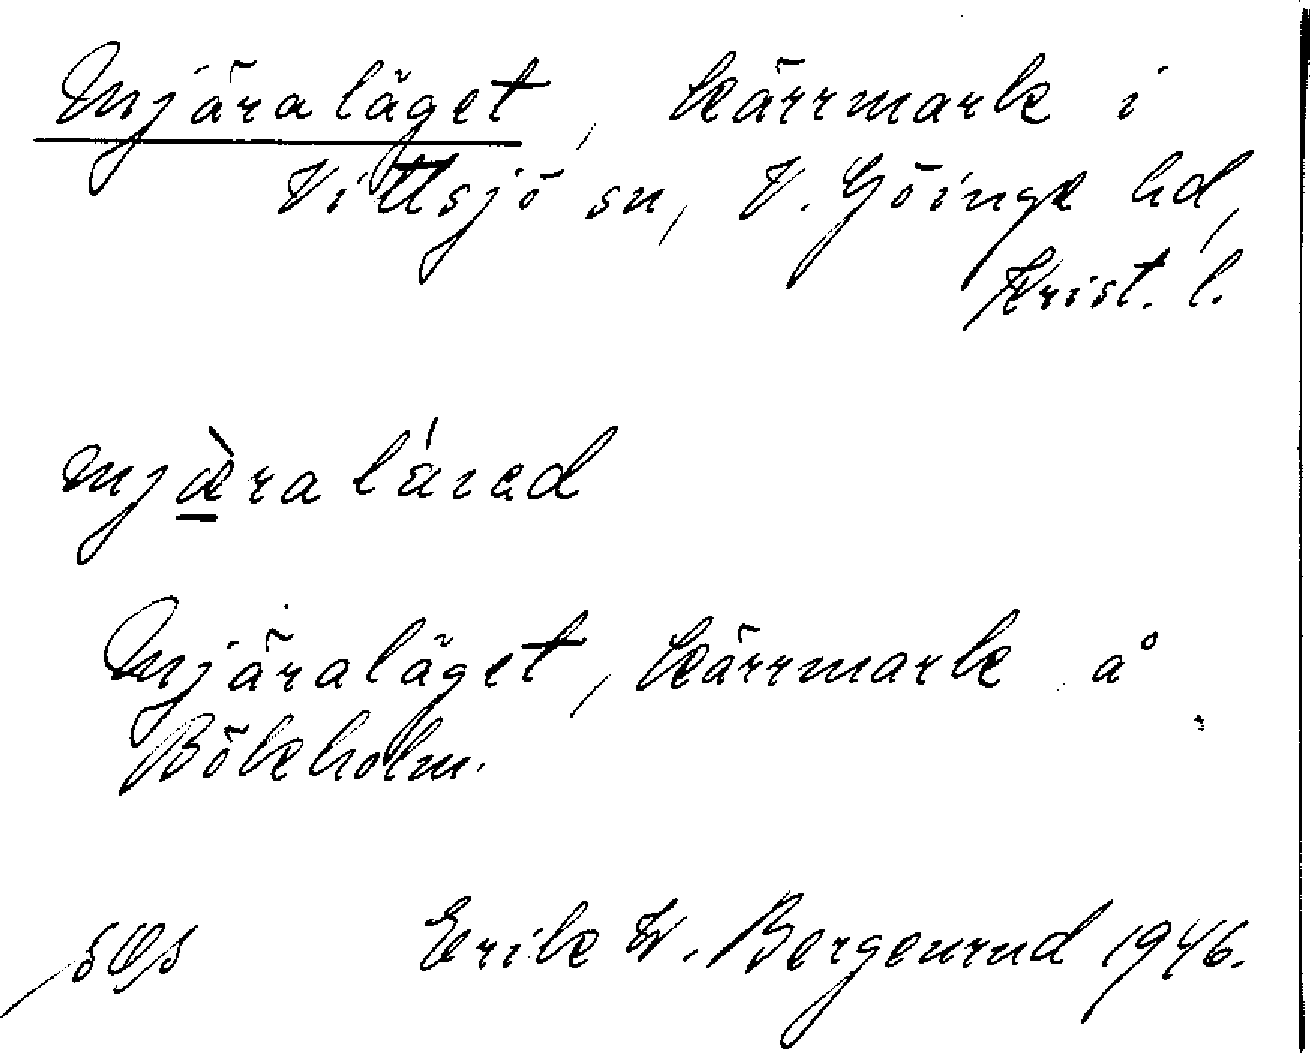 Mjäraläget, kärrmark i
Vittsjö sn, V. Göinge hd,
Krist. l.
mjæ̀raláıad
Mjäraläget, kärrmark å
Bökeholm.
Erik W. Bergenrud 1946.